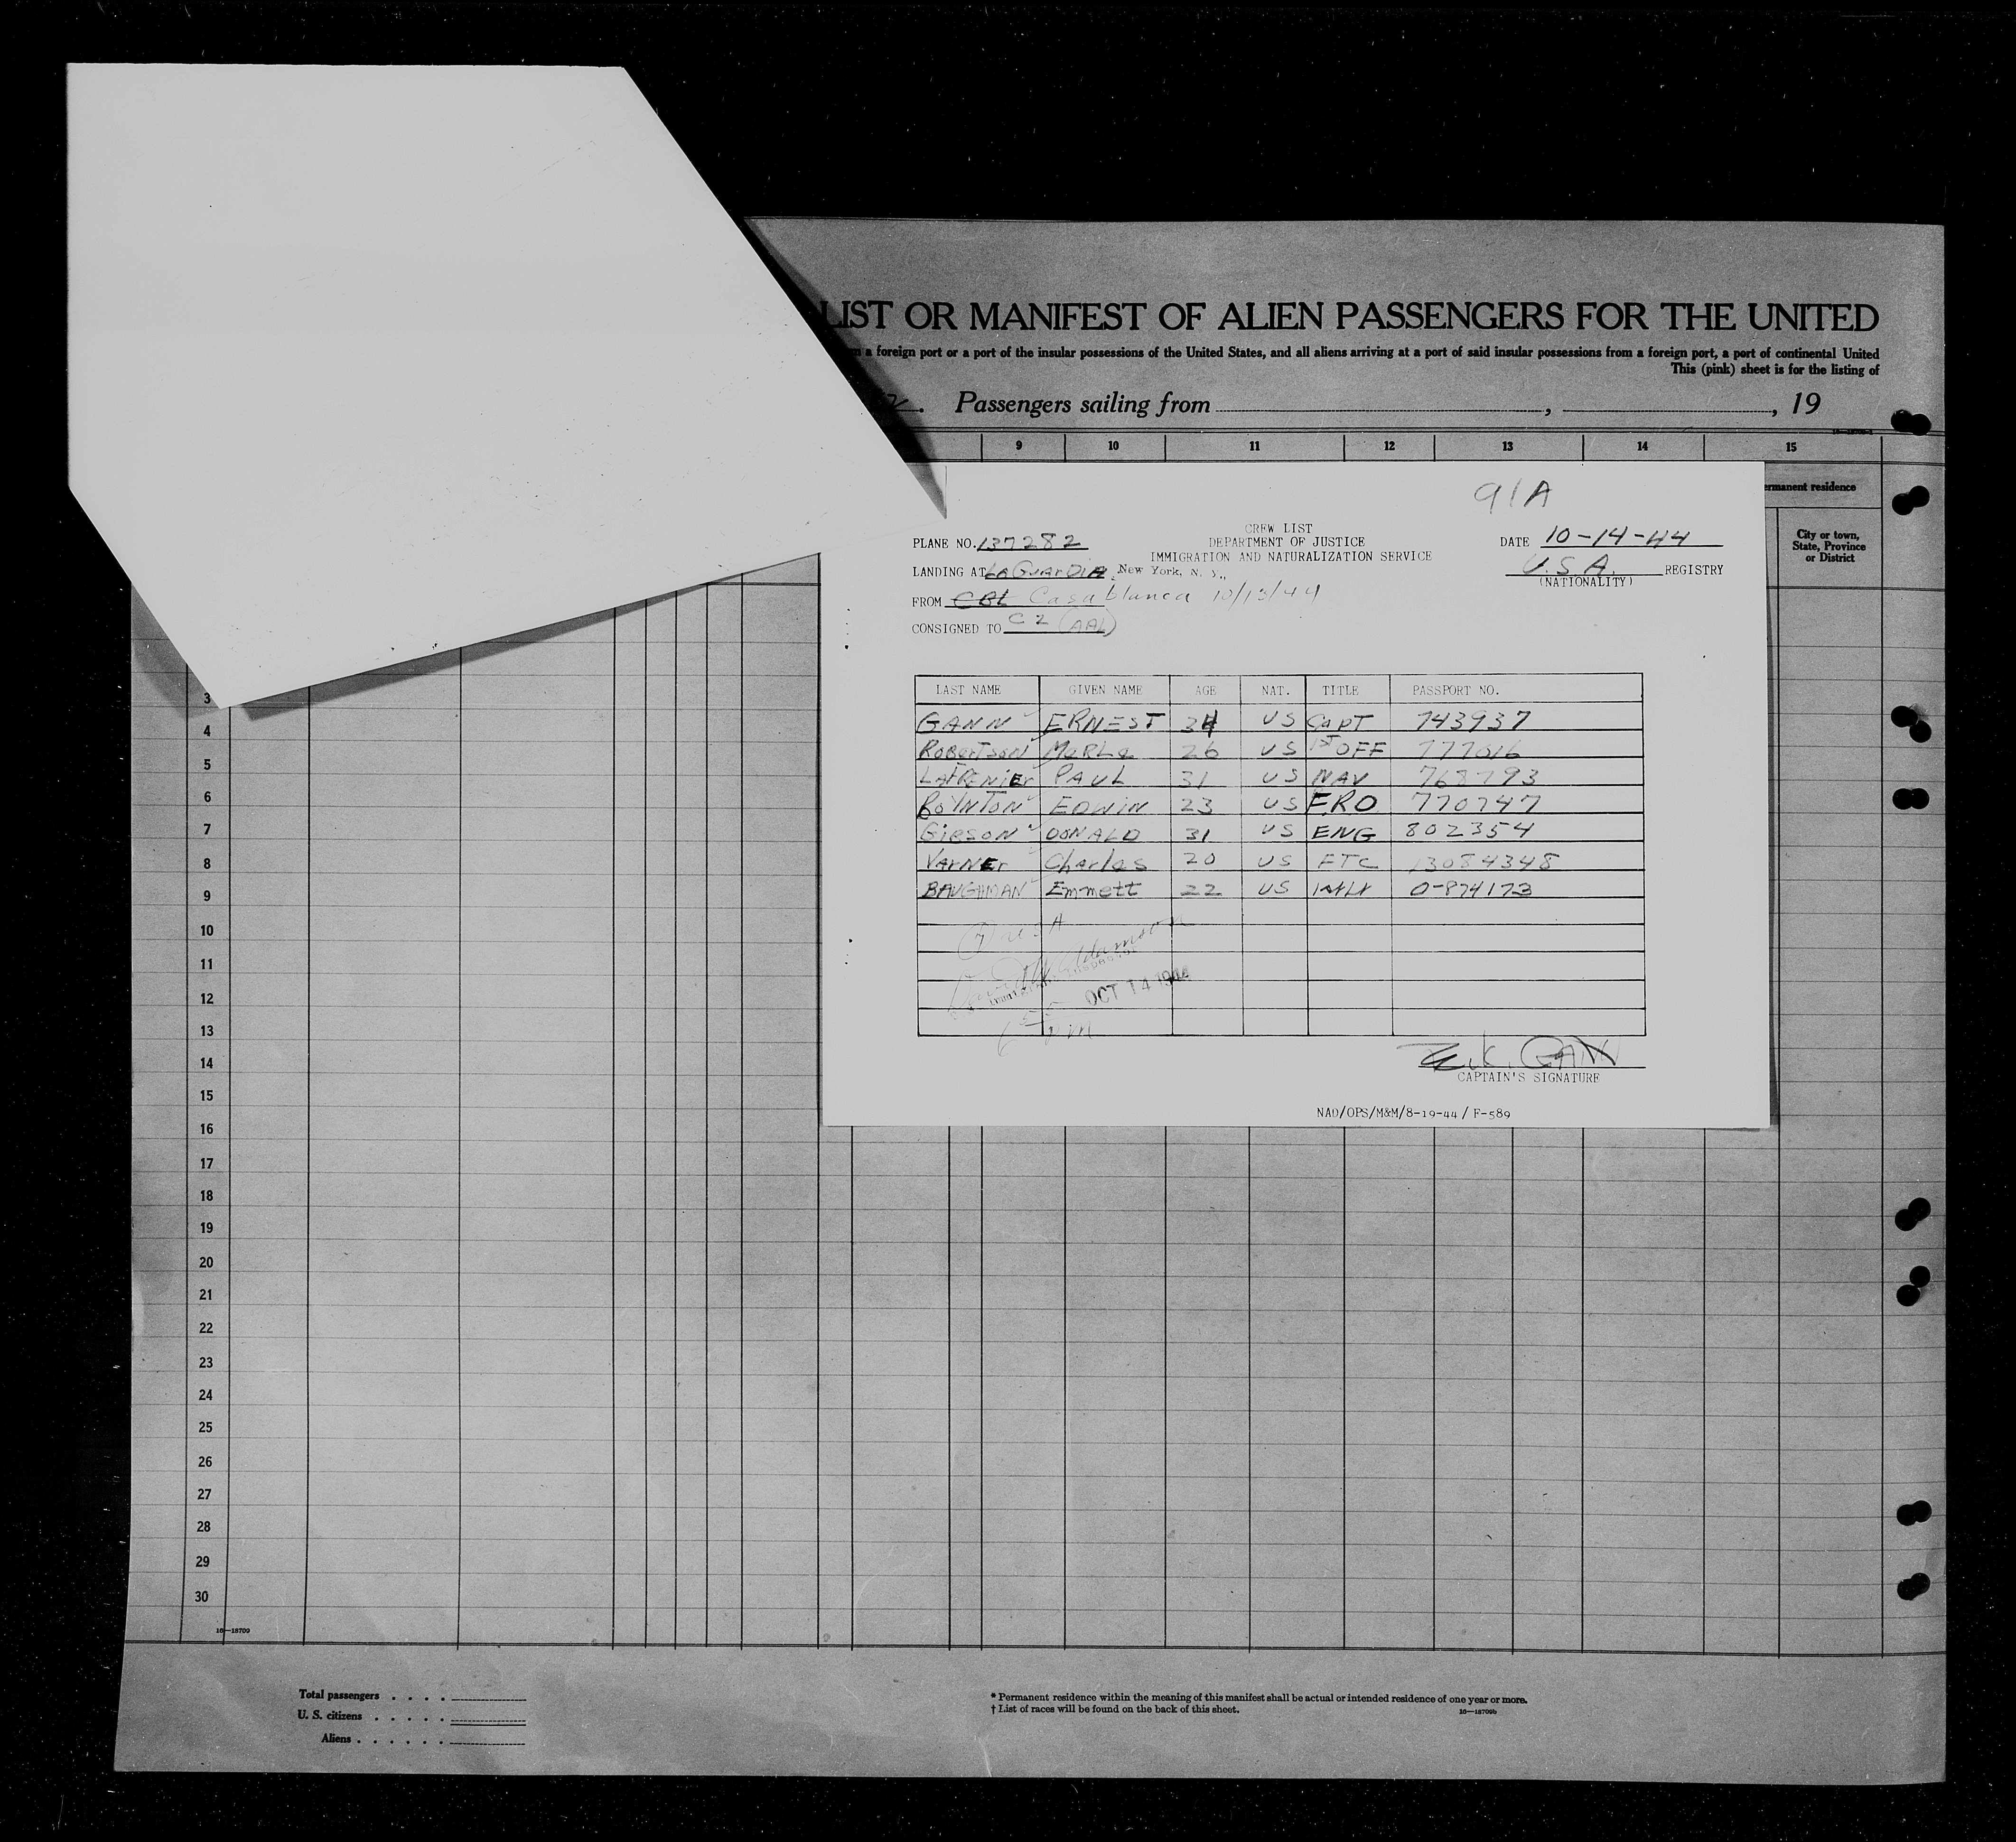 LIST OR MANIFEST OF ALIEN PASSENGERS FOR THE UNITED
a foreign port or a port of the insular possessions of the United States, and all aliens arriving at a port of said insular possessions from a foreign port, a port of continental United
This (pink) sheet is for the listing of
Passengers sailing from , , 19
9 10 11 12 13 14 15
permanent residence
City or town,
State, Province
or District
91A
CREW LIST
PLANE NO. 137282 DEPARTMENT OF JUSTICE DATE 10-14-44
IMMIGRATION AND NATURALIZATION SERVICE
LANDING AT LaGuardia, New York, N. Y., U.S.A. REGISTRY
(NATIONALITY)
FROM CBL Casablanca 10/13/44
CONSIGNED TO C2 (AAL)
LAST NAME GIVEN NAME AGE NAT. TITLE PASSPORT NO.
GANN ERNEST 34 US CAPT 743937
ROBERTSON MERLE 26 US 1ST OFF 777016
LAFRENIER PAUL 31 US NAV 768793
BOYNTON EDWIN 23 US F.R.O 770747
GIBSON DONALD 31 US ENG 802354
VARNER Charles 20 US FTC 13084348
BAUGHMAN Emmett 22 US 0-874173
OCT 14 1944
E.K. GANN
CAPTAIN'S SIGNATURE
NAD/OPS/M&M/8-19-44 / F-589
3
4
5
6
7
8
9
10
11
12
13
14
15
16
17
18
19
20
21
22
23
24
25
26
27
28
29
30
16—18709
Total passengers . . . .
U. S. citizens . . . . .
Aliens . . . . . .
* Permanent residence within the meaning of this manifest shall be actual or intended residence of one year or more.
† List of races will be found on the back of this sheet.
16—18709b